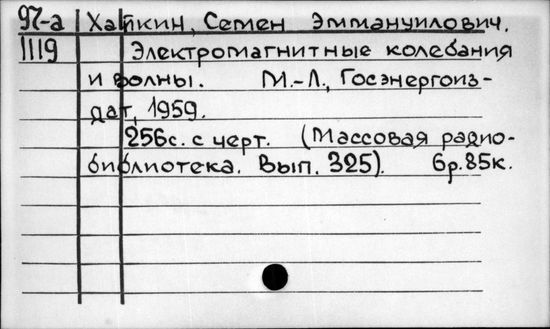 97-а Хайкин, Семен Эммануилович.
1119 Электромагнитные колебания
и волны. М.-Л., Госэнергоиз-
дат, 1959.
256с. с черт. (Массовая радио-
библиотека. Вып. 325). 6р.85к.